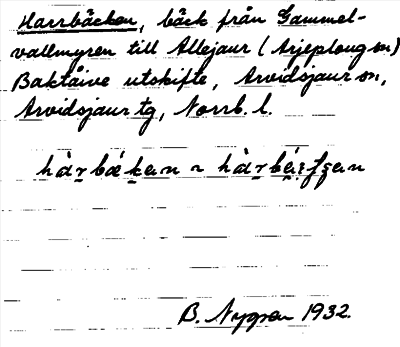 Harrbäcken, bäck från Gammel-
vallmyren till Allejaur (Arjeploug sn)
Baktaive utskifte, Arvidsjaur sn,
Arvidsjaur tg, Norrb. l.
B. Nygren 1932.